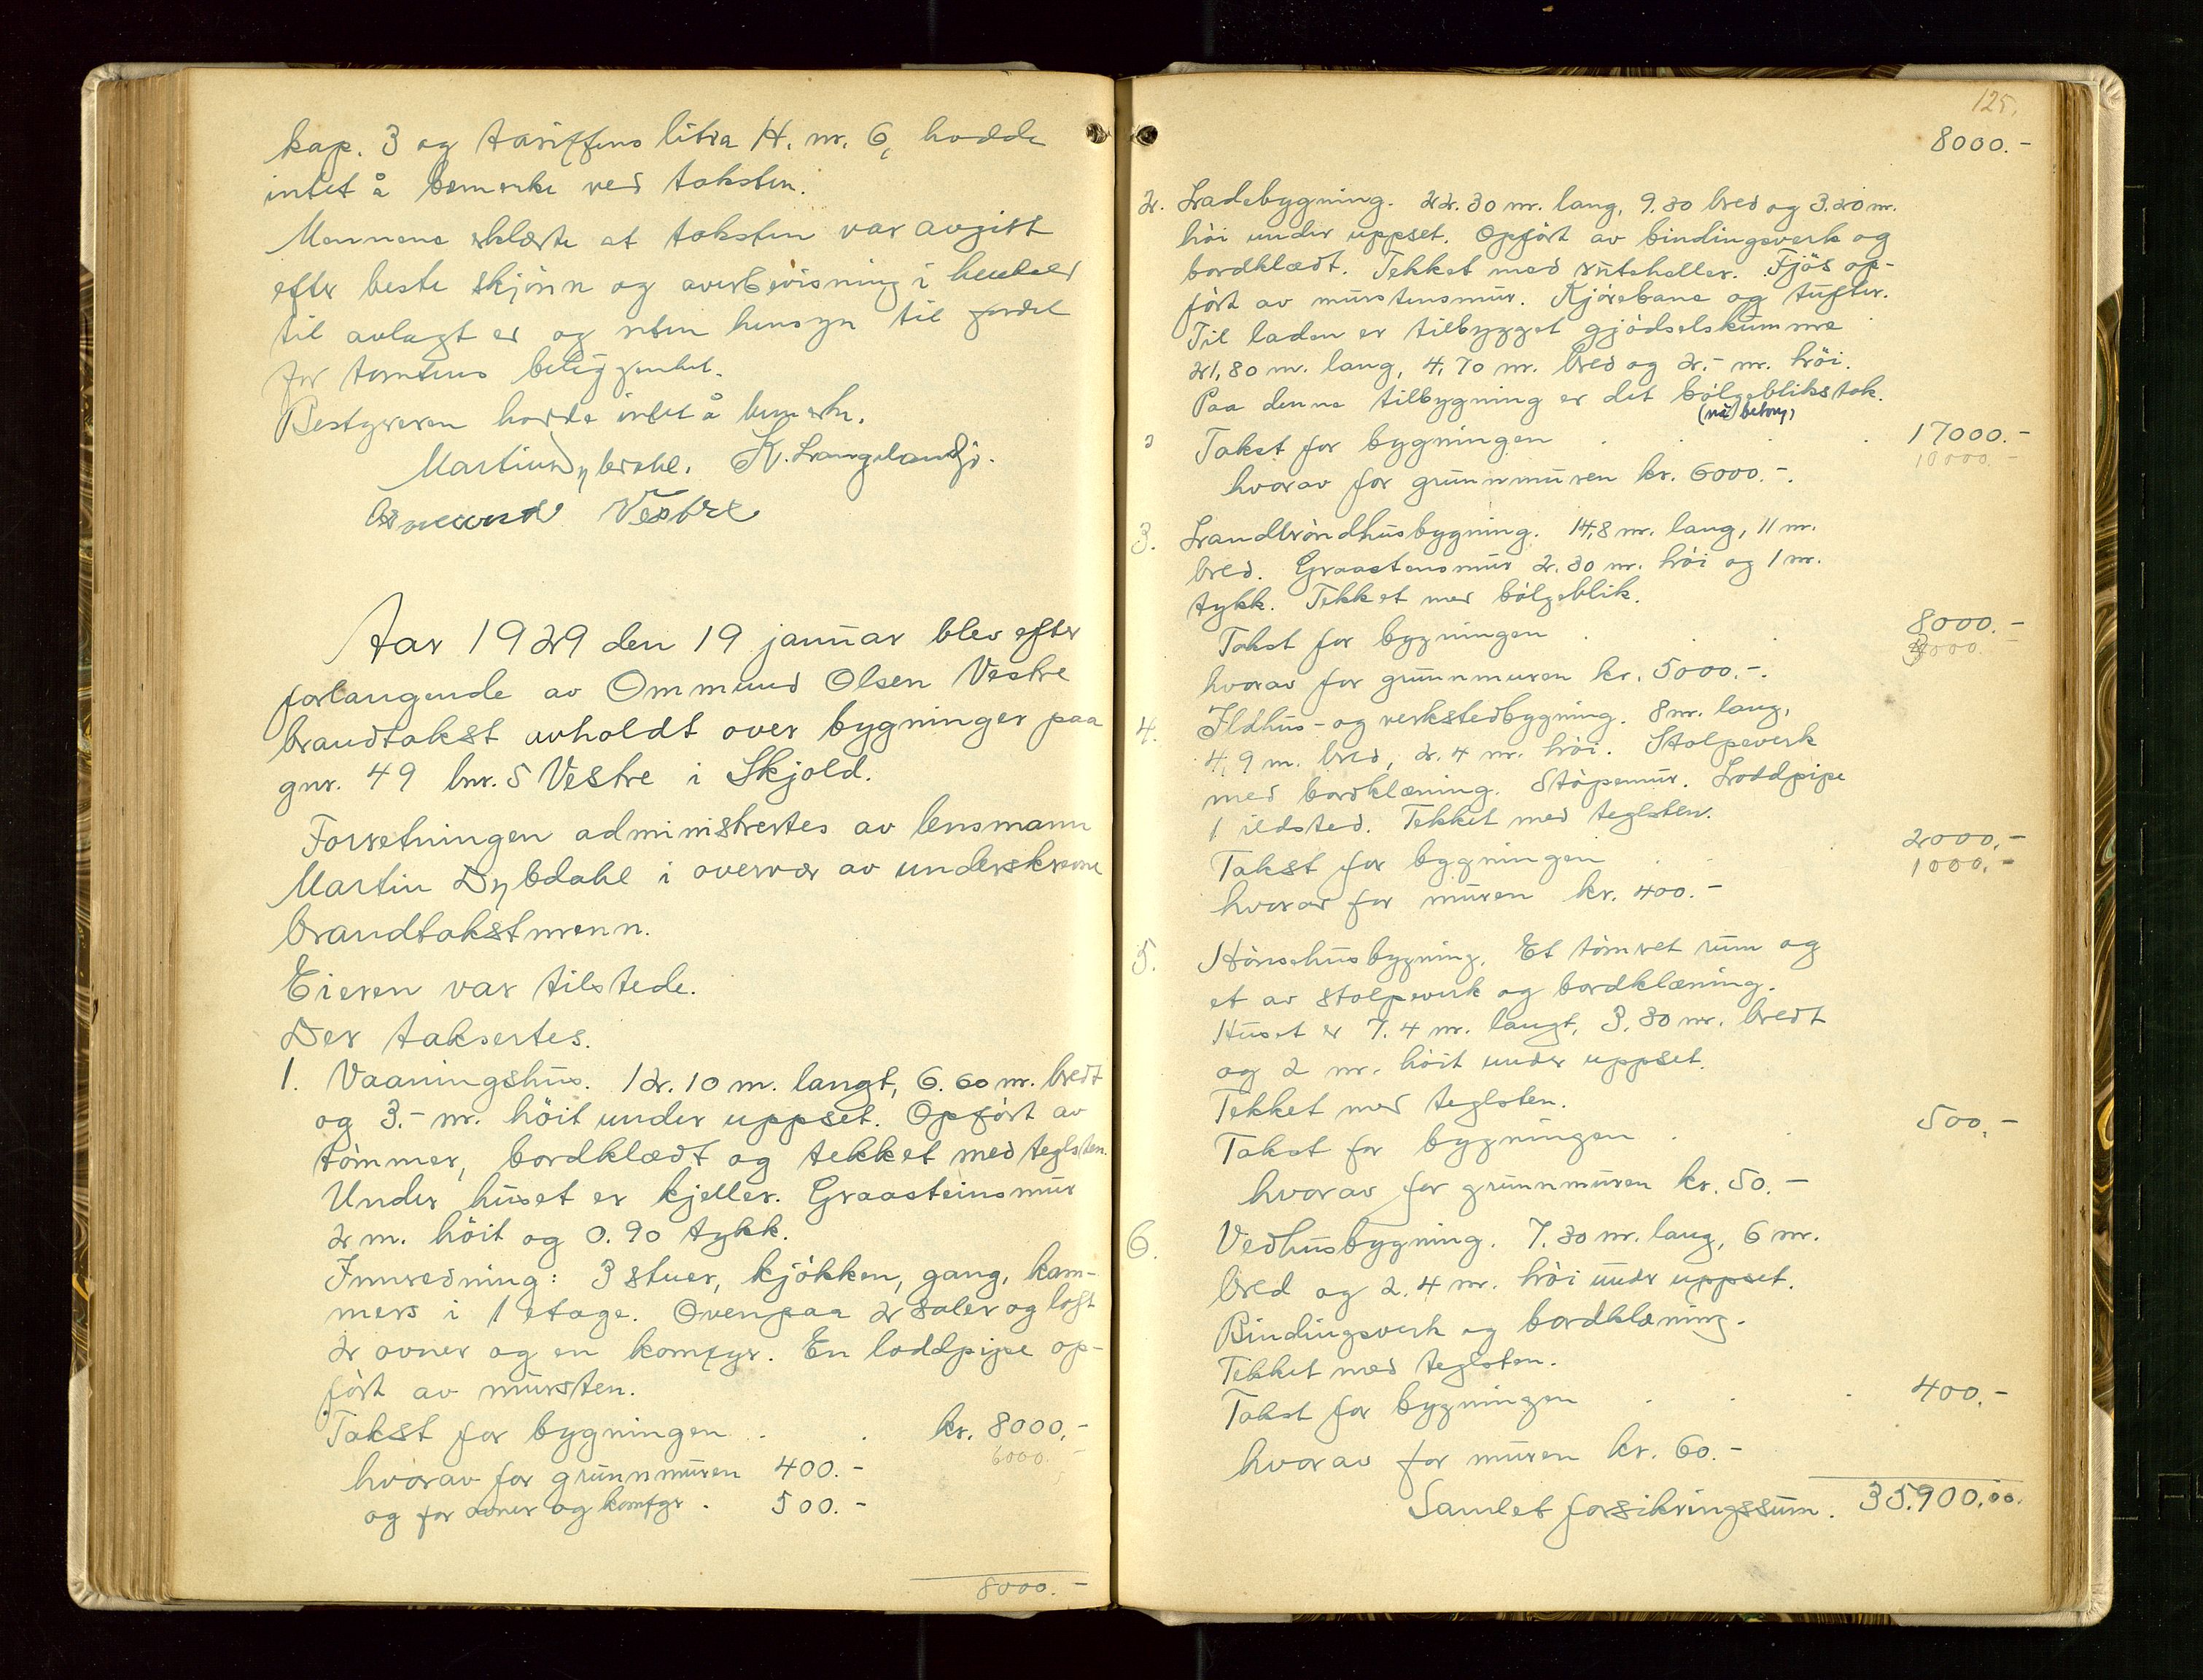 kap. 3 og tariffens litra H. nr. 6, hadde
intet å bemerke ved taksten.
Mennene erklærte at taksten var avgitt
efter beste skjönn og overbevisning i henhold
til avlagt ed og uten hensyn til fordel
for tomtens beliggenhet.
Bestyreren hadde intet å bemerke.
Martin Dybdahl. K. Langeland
Vestre
Aar 1929 den 19 januar blev efter
forlangende av Ommund Olsen Vestre
brandtakst avholdt over bygninger paa
gnr. 49 bnr. 5 Vestre i Skjold.
Forretningen administrertes av lensmann
Martin Dybdahl i overvær av underskrevne
brandtakstmenn.
Eieren var tilstede.
Der taksertes.
1. Vaaningshus. 12.10 m. langt, 6.60 m. bredt
og 3.- m. höit under uppset. Opfört av
tömmer, bordklædt og tekket med teglsten.
Under huset er kjeller. Graasteinsmur
2 m. höit og 0.90 tykk.
Innredning: 3 stuer, kjökken, gang, kam-
mers i 1 etage. Ovenpaa 2 saler og loft
2 ovner og en komfyr. En loddpipe op-
fört av mursten.
Takst for bygningen . . kr. 8000.-
6000.-
hvorav for grunnmuren 400.-
og for ovner og komfyr . 500.-
8000.-
125.
8000.-
2. Ladebygning. 22.30 m. lang, 9.30 bred og 3.20 m.
höi under uppset. Opfört av bindingsverk og
bordklædt. Tekket med ruteheller. Fjös op-
fört av murstensmur. Kjörebane og tufter.
Til laden er tilbygget gjödselskumme
21,80 m. lang, 4,70 m. bred og 2.- m. höi.
Paa denne tilbygning er det bölgeblikstak.
(nu betong)
Takst for bygningen . . . . 17000.-
10000.-
hvorav for grunnmuren kr. 6000.-.
3. Landbröndhusbygning. 14,8 m. lang, 11 m.
bred. Graastensmur 2.30 m. höi og 1 m.
tykk. Tekket med bölgeblik.
Takst for bygningen . . . 8000.-
3000.-
hvorav for grunnmuren kr. 5000.-.
4. Ildhus- og verkstedbygning. 8 m. lang,
4,9 m. bred, 2.4 m. höi. Stolpeverk
med bordklæning. Stöpemur. Loddpipe
1 ildsted. Tekket med teglsten.
Takst for bygningen . . . 2000,-
1000,-
hvorav for muren kr. 400.-
5. Hönsehusbygning. Et tömret rum og
et av stolpeverk og bordklæning.
Huset er 7.4 m. langt, 3.30 m. bredt
og 2 m. höit under uppset.
Tekket med teglsten.
Takst for bygningen . . 500,-
hvorav for grunnmuren kr. 50.-
6. Vedhusbygning. 7.30 m. lang, 6 m.
bred og 2.4 m. höi under uppset.
Bindingsverk og bordklæning.
Tekket med teglsten.
Takst for bygningen . . . 400.-
hvorav for muren kr. 60.-
Samlet forsikringssum. 35.900,00.